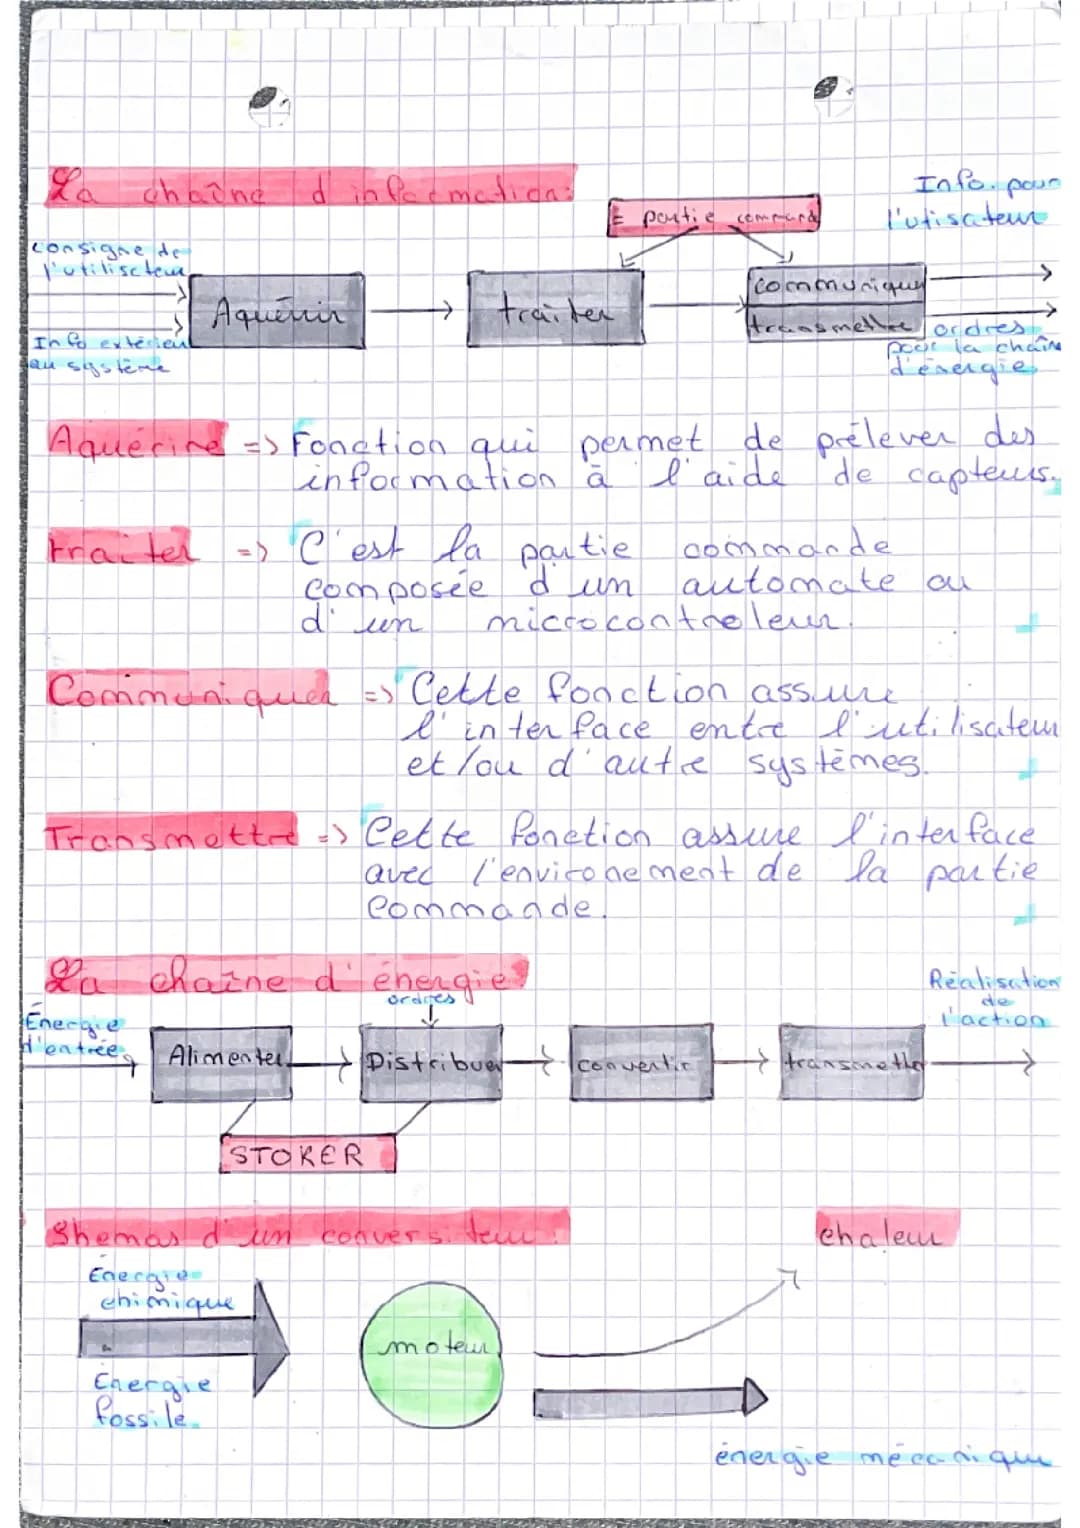 La chaîne d'information:
Info. pour
l'utisateur
= partie commande
consigne de
l'utilisateur
Aquérir
traiter
communiquer
transmettre
Info extérieur
au système
ordres
pour la chaîne
d'énergie
Aquérire => Fonction qui permet de prélever des
information à l'aide de capteurs.
traiter => C'est la partie commande
composée d'un automate ou
d'un microcontroleur.
Communiquer => Cette fonction assure
l'interface entre l'utilisateur
et/ou d'autre systèmes.
Transmettre => Cette fonction assure l'interface
avec l'environement de la partie
commande.
La chaîne d'énergie:
Réalisation
de
l'action
ordres
Énergie
d'entrée
Alimenter
Distribuer
convertir
transmettre
STOKER
Shemas d'un convertisseur:
chaleur
Énergie
chimique
moteur
Énergie
fossile
énergie mécanique